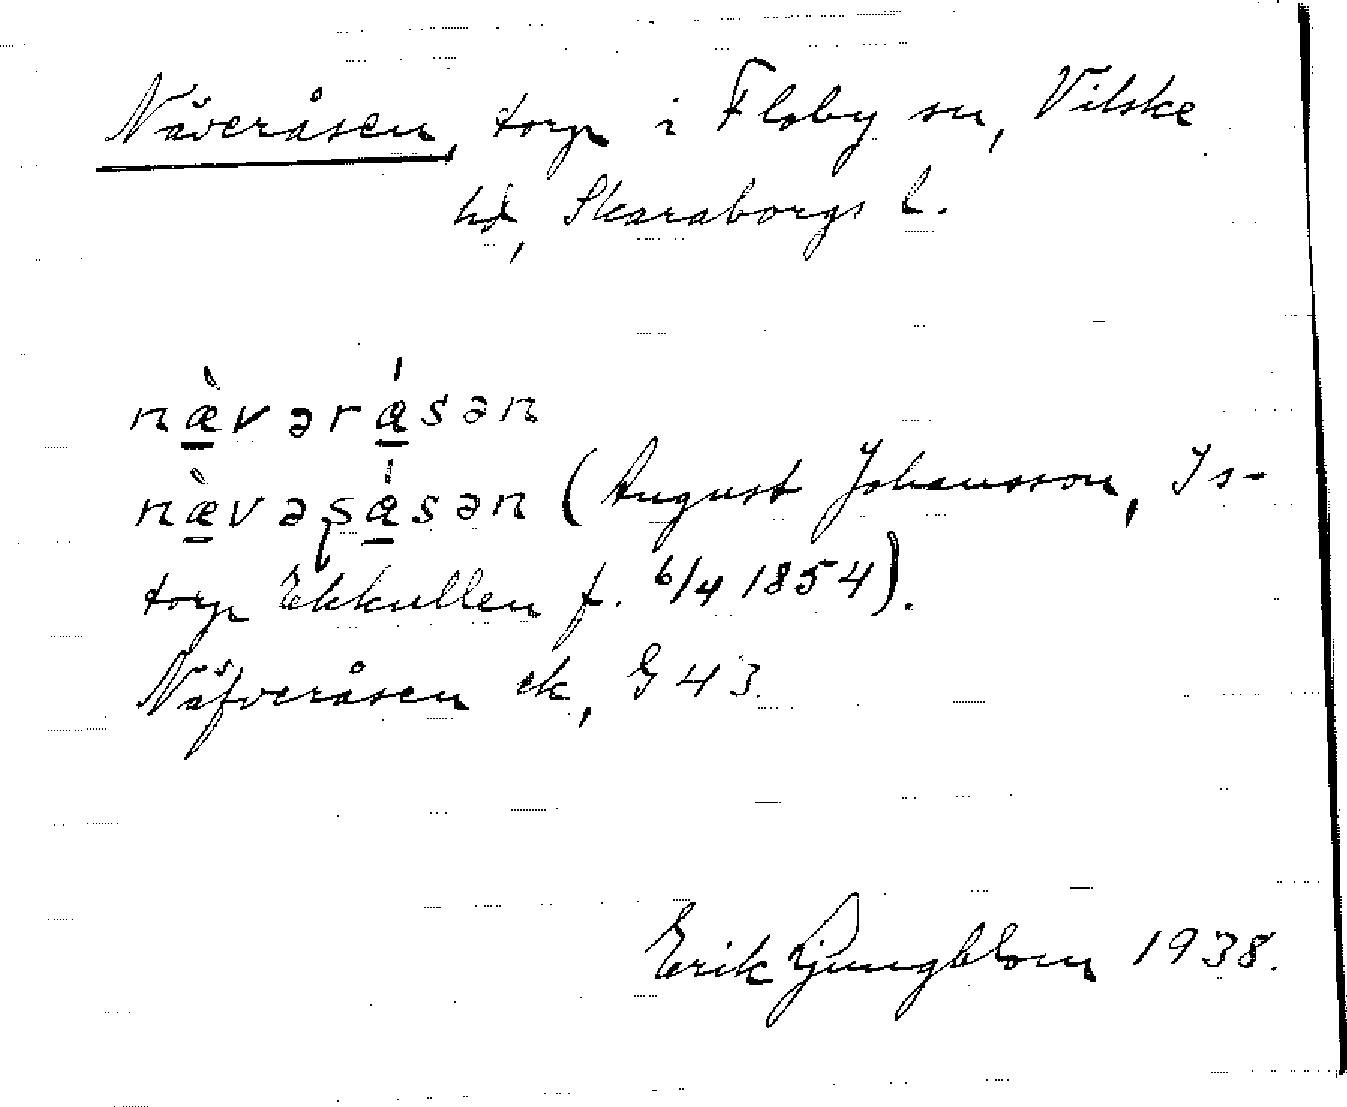 Näveråsen, torp i Floby sn, Vilske
hd, Skaraborgs l.
næ̀vərásən
næ̀vəʂásən (August Johansson, Is-
torp Ekkullen f. 6/4 1854).
Näfveråsen ek, G 43.
Erik Ljungblom 1938.